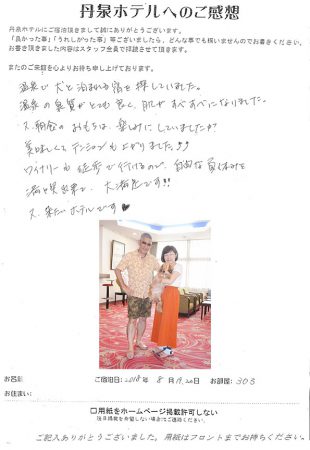 丹泉ホテルへのご感想
丹泉ホテルにご宿泊頂きまして誠にありがとうございます。
「良かった事」「うれしかった事」等ございましたら、どんな事でも構いませんのでお書きください。
お書き頂きました内容はスタッフ全員で拝読させて頂きます。
またのご来館を心よりお待ち申し上げております。
温泉で犬と泊まれる宿を探していました。
温泉の泉質がとても良く、肌がすべすべになりました。
又、朝食の おもちは、楽しみにしていましたが
美味しくてテンションも上がりました!!
ワイナリーも徒歩で行けるので、自由な夏休みを
満喫出来て、大満足です!!
又、来たいホテルです♥
お名前
ご宿泊日: 2018年 8月 19,20日
お部屋: 303
お住まい:
□用紙をホームページ掲載許可しない
ご記入ありがとうございました。用紙はフロントまでお持ちください。